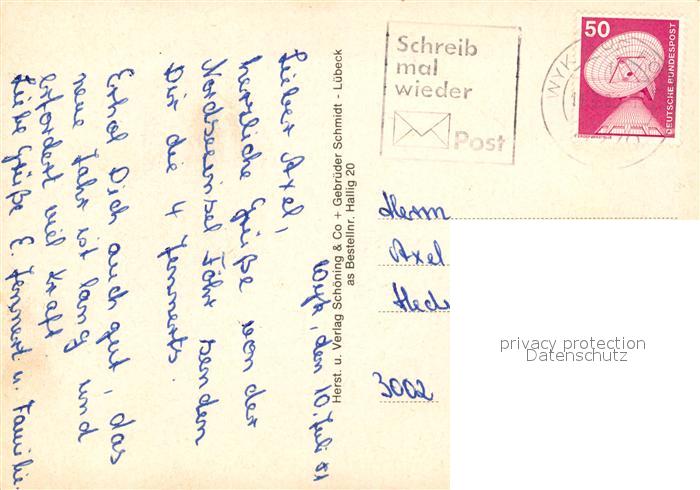 Wyk, den 10. Juli 81
Lieber Axel,
herzliche Grüße von der
Nordseeinsel Föhr senden
Dir die 4 Jennerts.
Erhol Dich auch gut, das
neue Jahr ist lang und
erfordert viel Kraft
Liebe Grüße E. Jennert u. Familie.
Herst. u. Verlag Schöning & Co + Gebrüder Schmidt - Lübeck
as Bestellnr. Hallig 20
Schreib
mal
wieder
Post
WYK
50
DEUTSCHE BUNDESPOST
Herrn
Axel
3002
privacy protection
Datenschutz